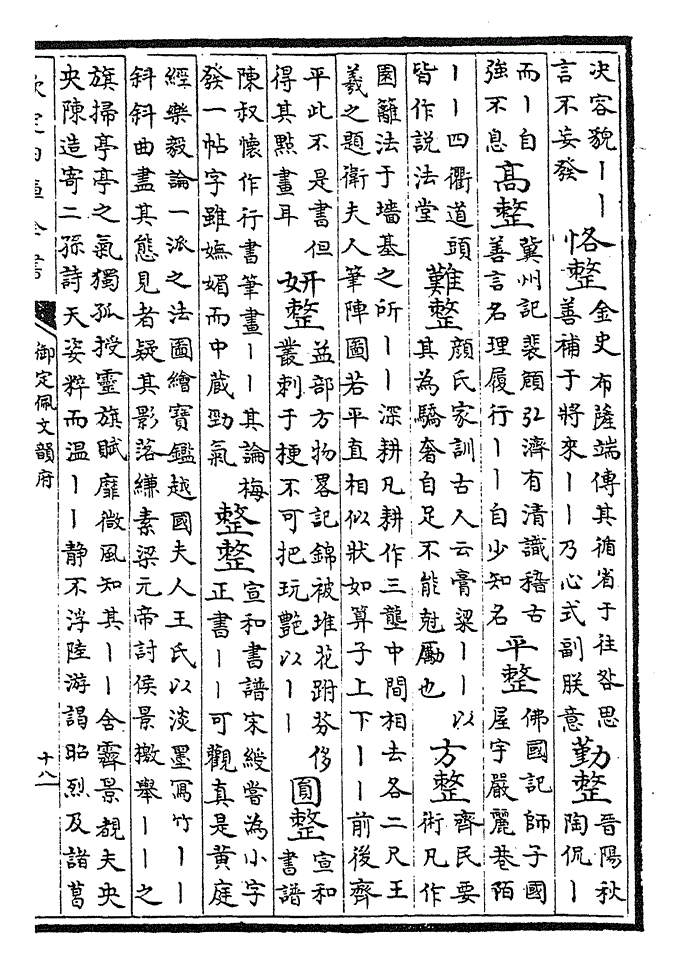 决容貌｜｜言不妄發 恪整 金史布隆端傳其循省于往咎思善補于將來｜｜乃心式副朕意 勤整 晉陽秋陶侃｜
而｜自強不息 高整 冀州記裴頠弘濟有清識稽古善言名理履行｜｜自少知名 平整 佛國記師子國屋宇嚴麗巷陌
｜｜四衢道頭皆作説法堂 難整 顔氏家訓古人云膏粱｜｜以其為驕奢自足不能尅勵也 方整 齊民要術凡作
園籬法于墻基之所｜｜深耕凡耕作三壟中間相去各二尺王羲之題衛夫人筆陣圖若平直相似狀如算子上下｜｜前後齊
平此不是書但得其點畫耳 妍整 益部方物畧記錦被堆花跗芬侈叢刺于梗不可把玩艷以｜｜ 圓整 宣和書譜
陳叔懷作行書筆畫｜｜其論梅發一帖字雖嫵媚而中蔵勁氣 整整 宣和書譜宋綬嘗為小字正書｜｜可觀真是黄庭
經樂毅論一派之法圖繪寶鑑越國夫人王氏以淡墨寫竹｜｜斜斜曲盡其態見者疑其影落縑素梁元帝討侯景檄舉｜｜之
旗掃亭亭之氣獨孤授靈旗賦靡微風知其｜｜舍霽景覩夫央央陳造寄二孫詩天姿粹而温｜｜静不浮陸游謁昭烈及諸葛
欽定四庫全書 御定佩文韻府 十八